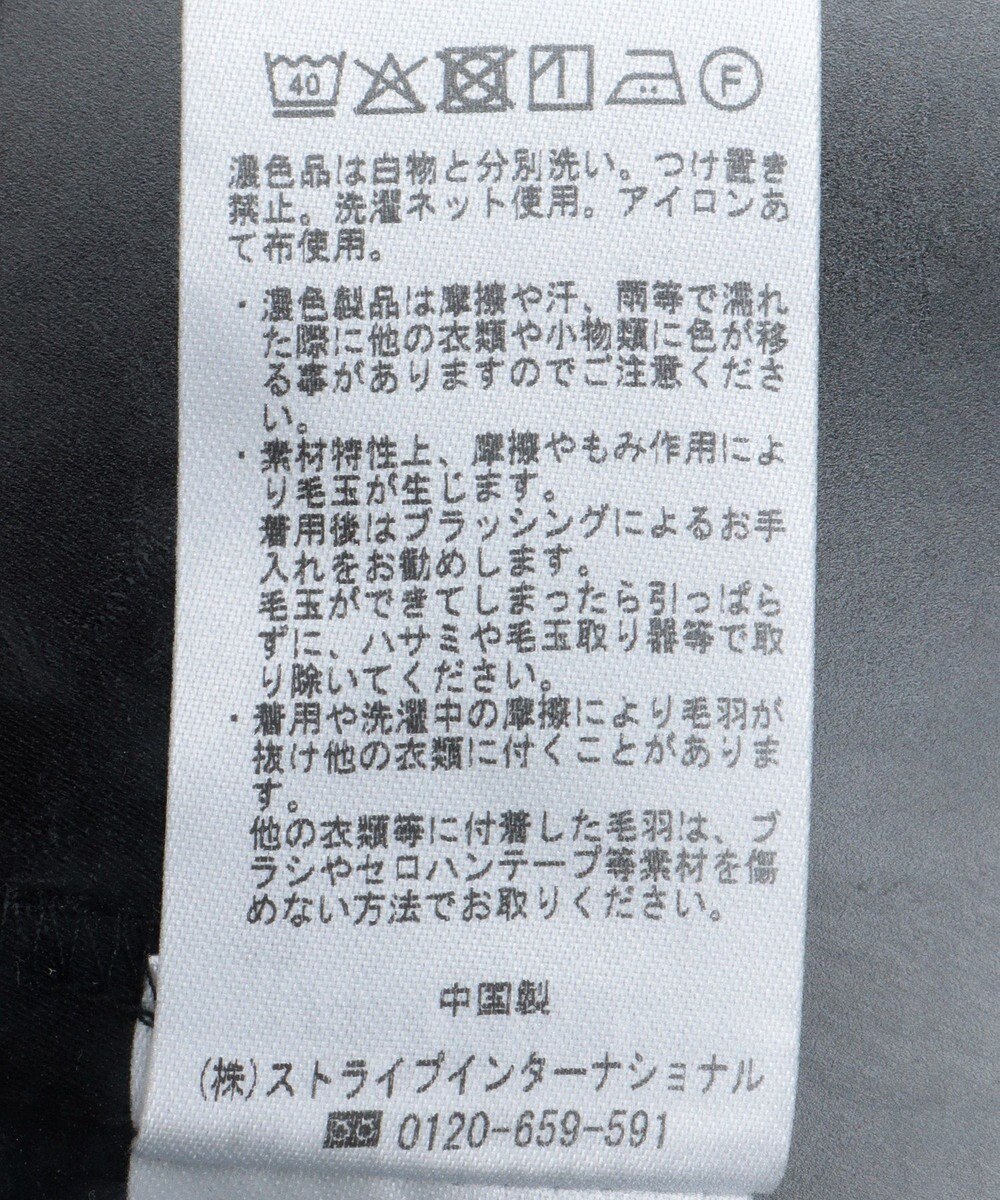 40 F
濃色品は白物と分別洗い。つけ置き
禁止。洗濯ネット使用。アイロンあ
て布使用。
・濃色製品は摩擦や汗、雨等で濡れ
た際に他の衣類や小物類に色が移
る事がありますのでご注意くださ
い。
・素材特性上、摩擦やもみ作用によ
り毛玉が生じます。
着用後はブラッシングによるお手
入れをお勧めします。
毛玉ができてしまったら引っぱら
ずに、ハサミや毛玉取り器等で取
り除いてください。
・着用や洗濯中の摩擦により毛羽が
抜け他の衣類に付くことがありま
す。
他の衣類等に付着した毛羽は、ブ
ラシやセロハンテープ等素材を傷
めない方法でお取りください。
中国製
(株)ストライプインターナショナル
0120-659-591